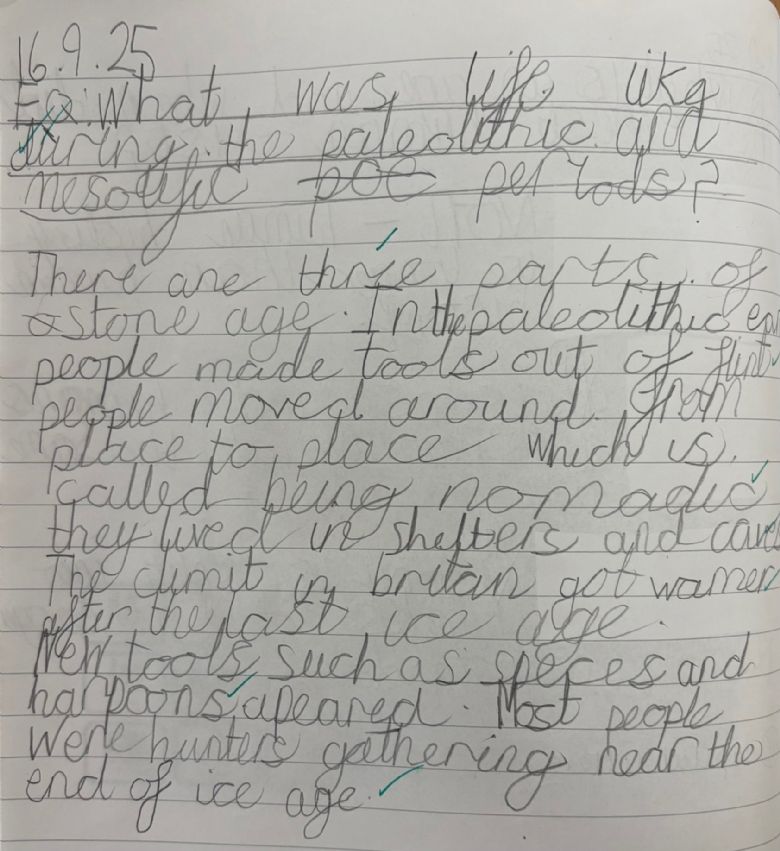 16.9.25
EQ: What was life like
during the paleolithic and
mesolific poe periods?
There are three parts of
stone age. In the paleolithic
people made tools out of flint
people moved around from
place to place which is
called being nomadic
they lived in shelters and cave
The climit in britan got warmer
after the last ice age.
New tools such as speces and
harpoons apeared. Most people
were hunters gathering near the
end of ice age.